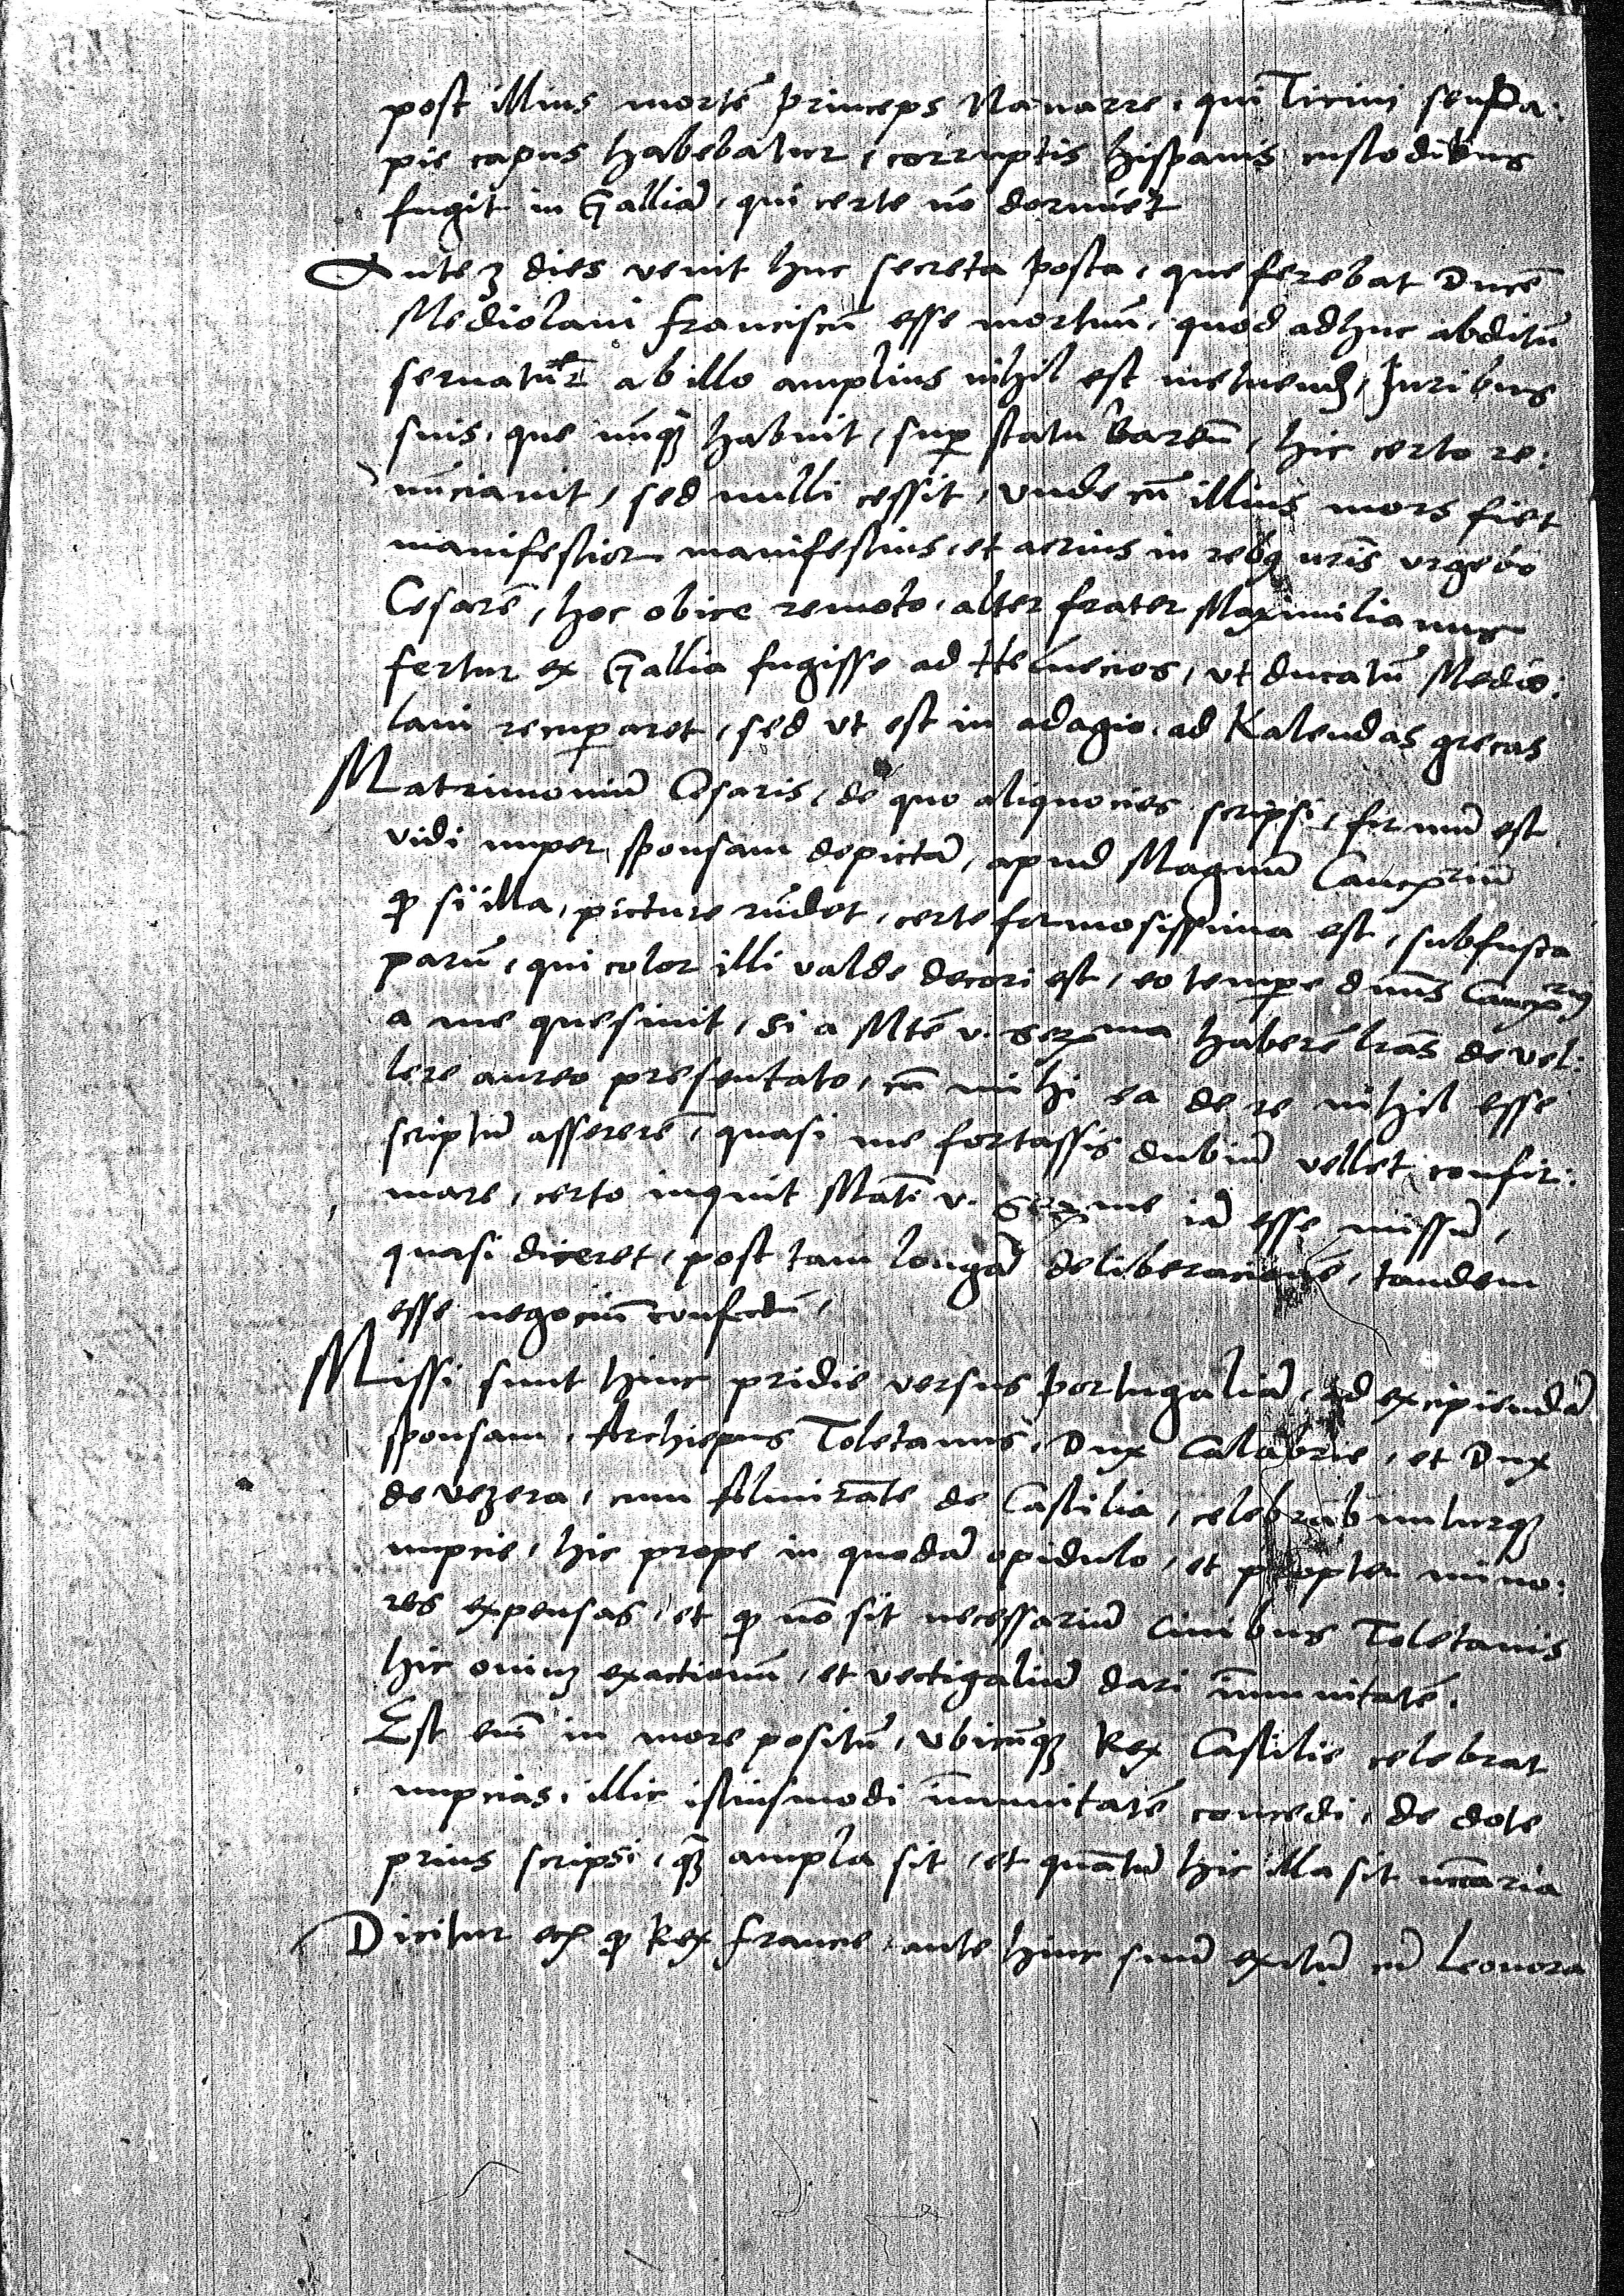 post illius mortē princeps Nauarre, qui Ticini seu Pa:
pie captus habebatur, corruptis hispanis custodibus
fugit in Galliā, qui certe nō dormiet
Ante 3 dies venit huc secreta posta, que ferebat Ducē
Mediolani franciscū esse mortuū, quod adhuc abditū
seruatur ab illo amplius nihil est metuend, Juribus
suis, que unq̃ habuit, suꝑ statu Barēn, hic certo re:
nūciauit, sed nulli cessit, vnde cū illius mors fiet
manifestior manifestius, et acrius in rebꝫ vrīs vrgebo
Cesarē, hoc obice remoto, alter frater Maximilianus
fertur ex Gallia fugisse ad Heluecios, vt ducatū Medio:
lani recuꝑaret, sed vt est in adagio, ad Kalendas grecas
Matrimoniū Cesaris, de quo aliquocies scripsi, firmū est
vidi nuper sponsam depictā, apud Magnū Cancꝛiū
ꝙ si illa, picture rūdet, certe formosissima est, subfusca
parū, qui color illi valde decori est, eo temꝑe dnūs Cancꝛius
a me quesiuit, si a Mtē v. serma haberē lrās de vel:
lere aureo presentato, cū mihi ea de re nihil esse
scriptū assererē, quasi me fortassis dubiū vellet confir:
mare, certo inquit Matī v. serme iā esse missū,
quasi diceret, post tam longā deliberacionē, tandem
esse negociū confectū,
Missi sunt hinc pridie versus portugaliā, ad excipiendā
sponsam, Archiepus Toletanus, Dux Calabrie, et Dux
de vezera, cum Almirante de Castilia, celebrabunturqꝫ
nupcie, hic prope in quodā opidulo, et propter mino:
res expensas, et ꝙ nō sit necessariū Ciuibus Toletanis
hic oniuꝫ exactionū, et vectigaliū dari īmunitatē.
Est enī in more positū, vbicūqꝫ Rex Castilie celebrat
nupcias, illic istiusmodi īmunitatē concedi, de dote
prius scripsi, q̃ ampla sit, et quantū hic illa sit nccāria
Dicitur ecꝫ ꝙ Rex francie, ante hinc suū exitū cū Leonora